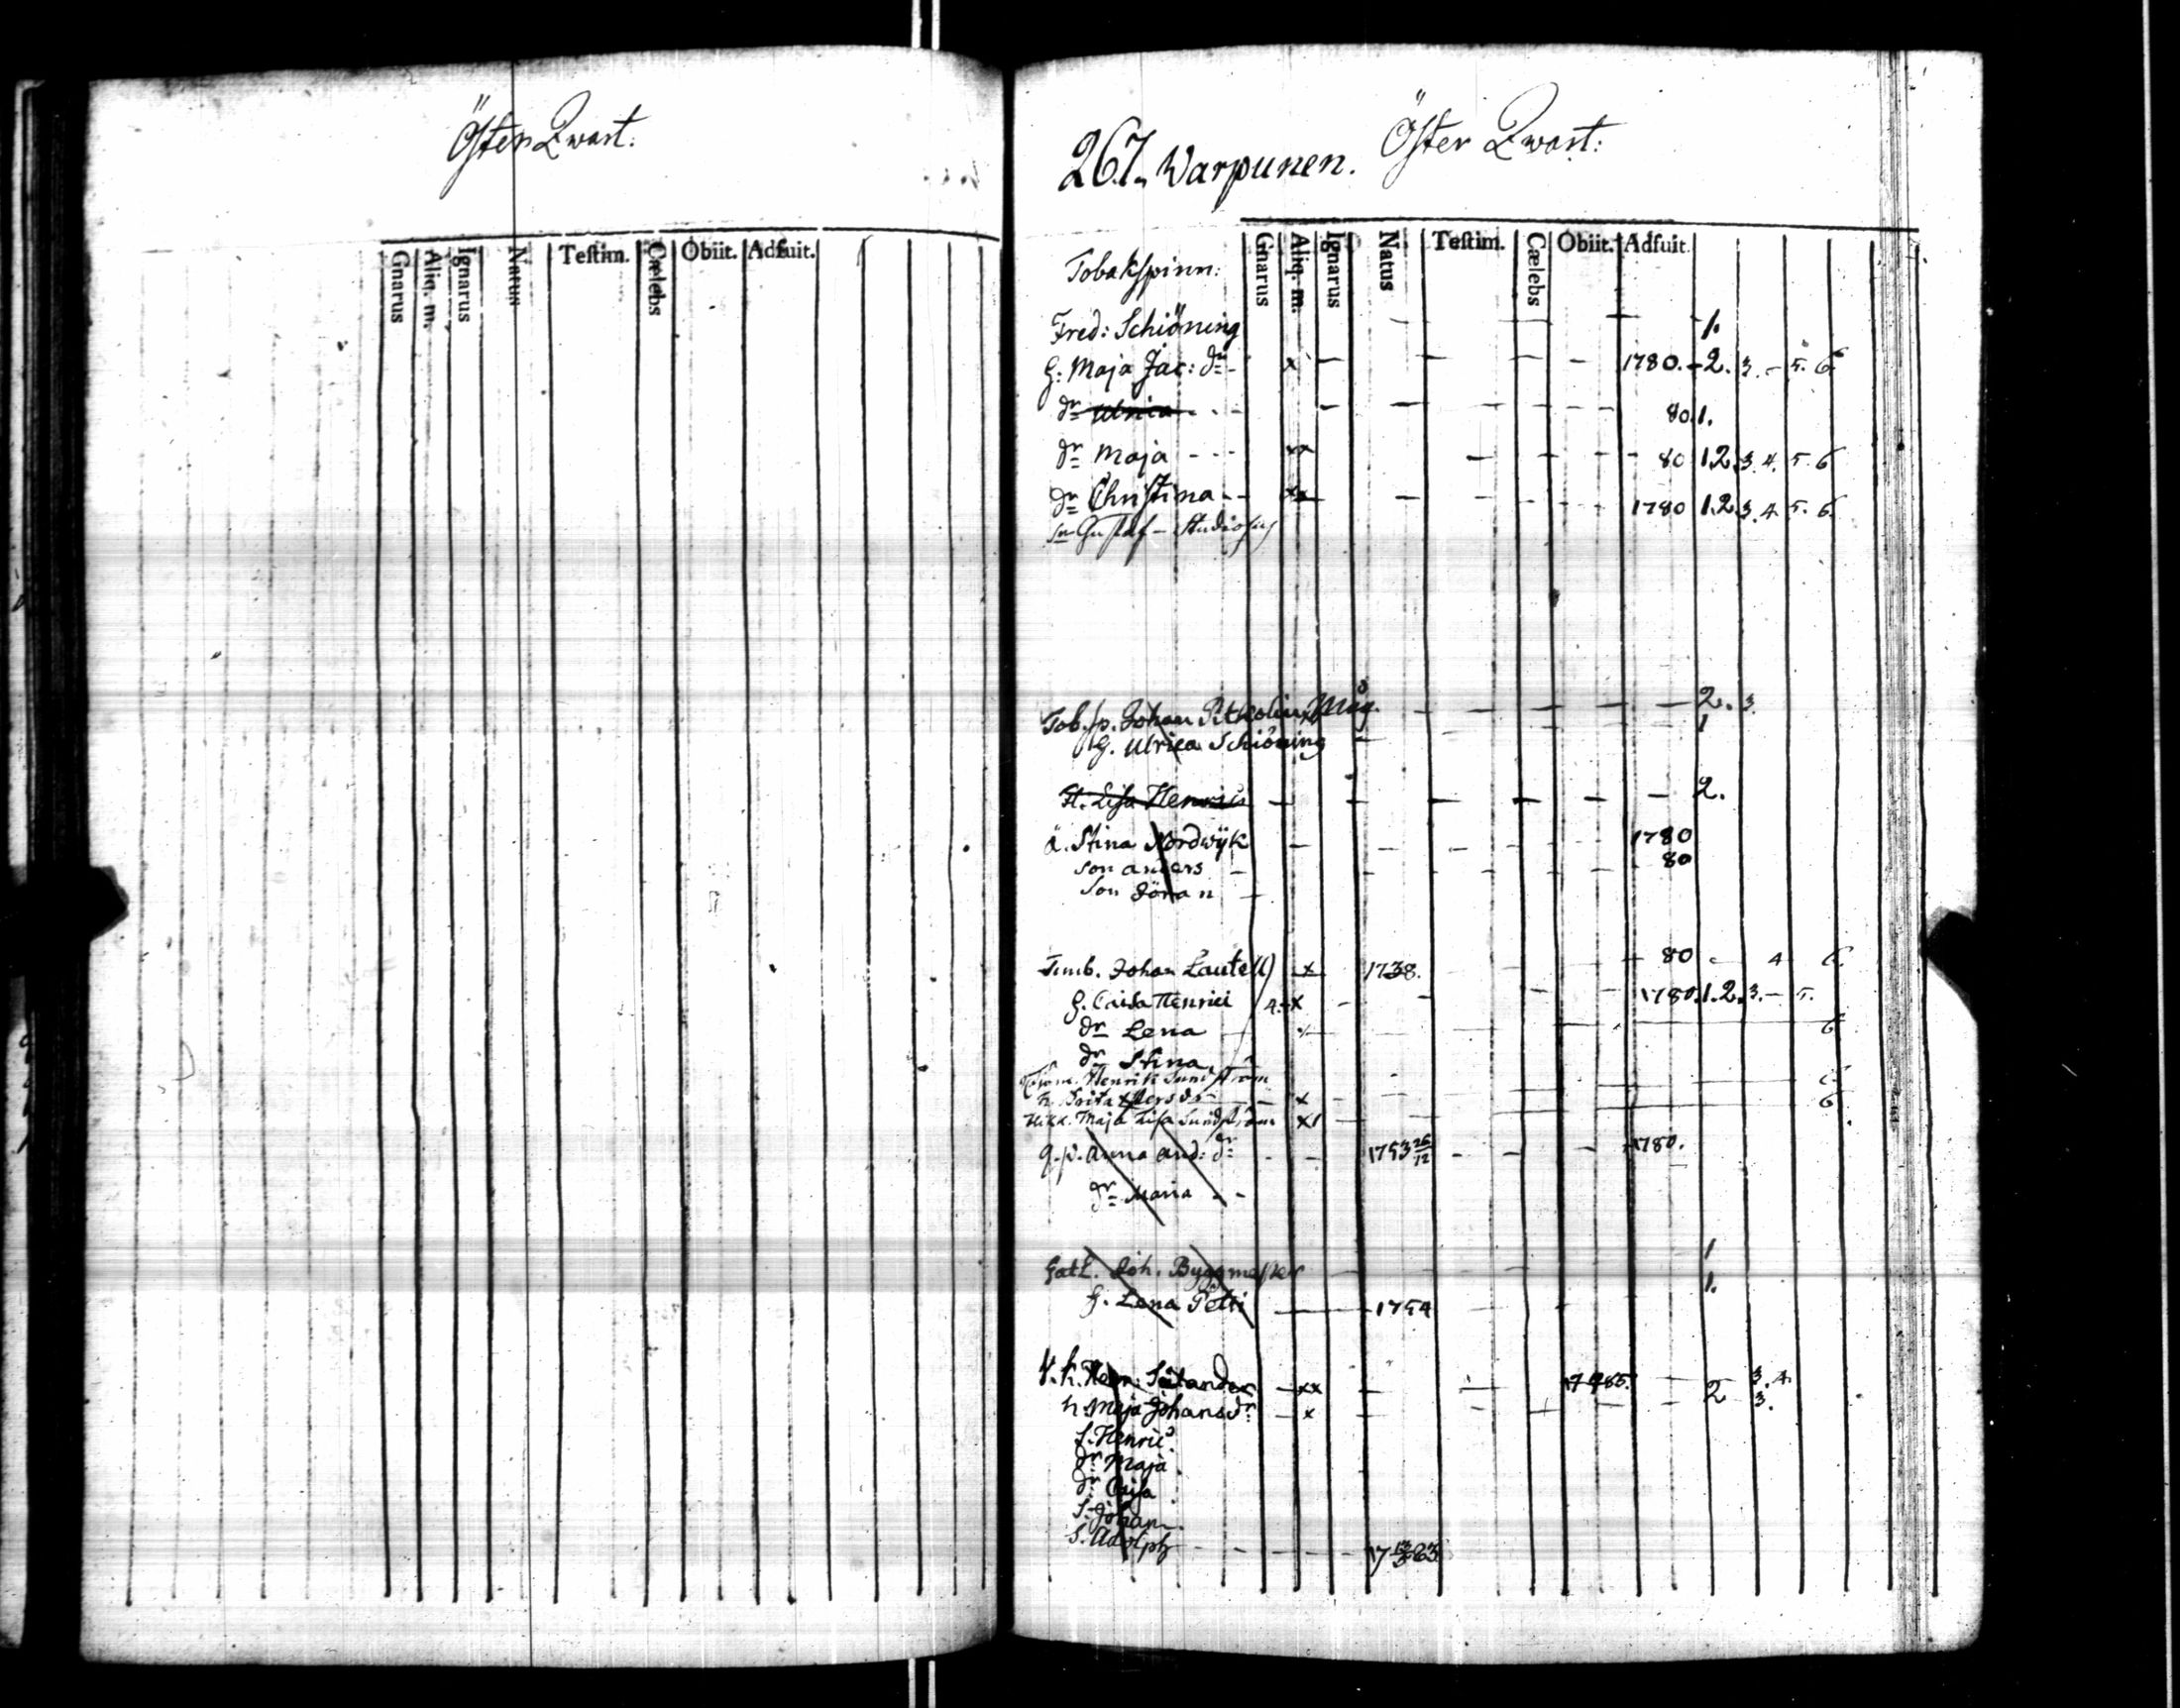 Öster Qwart:
Gnarus Aliq. m. Ignarus Natus Testim. Cælebs Obiit. Adfuit.
267. Warpunen. Öster Qwart:
Tobakspinn: Gnarus Aliq. m. Ignarus Natus Testim. Cælebs Obiit. Adfuit.
Fred: Schiöning 1.
H: Maja Jac: dr x 1780. 2. 3. - 5. 6
dr Ulrica 80. 1.
dr Maja xx 80 1.2.3.4.5.6
dr Christina xx 1780 1.2.3.4.5.6
sn Gustaf - Studiosus
Tob. sp. Johan Måg. 2. 3.
H. Ulrica Schiöning 1
Lisa Henrici 2.
Stina Nordwijk 1780
son anders 80
son Jöran
Timb. Johan Lautell x 1738. 80 4 6.
H. Caisa Henrici x 1780. 1.2.3. - 5.
dr Lena 6
dr Stina
Henrik Sundström 6
h. Brita x 6
Maja Lisa Sundström x
q.p. anna and: dr 1753 26/12 1780.
dr Maria
Joh. Byggmester 1
H. Lena Petti 1754 1.
xx 1785. 3. 4.
h Maja Johansdr x 2 3.
s. Henric
dr Maja
dr Caisa
s. Johan
s. Adolph